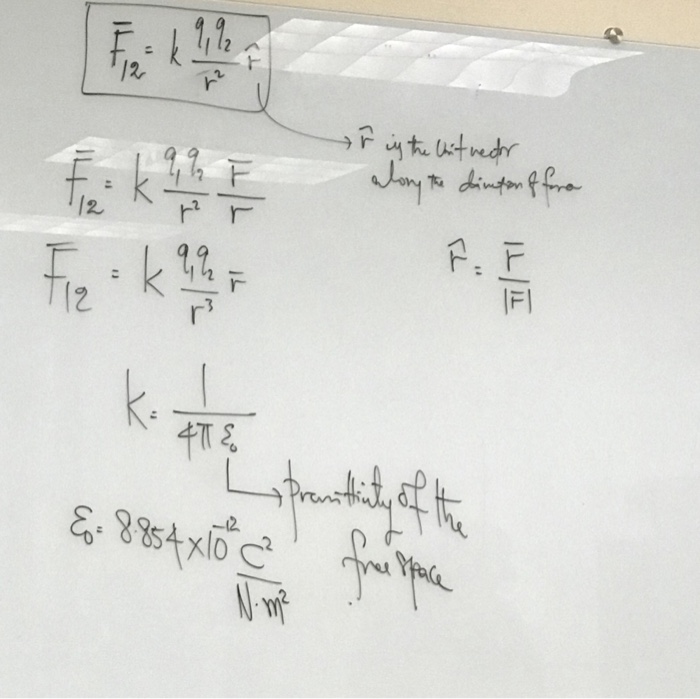 F̅₁₂ = k q₁q₂/r² r̂
→ r̂ is the unit vector
along the direction of force
F̅₁₂ = k q₁q₂/r² r̅/r
F̅₁₂ = k q₁q₂/r³ r̅
r̂ = r̅/|r̅|
k = 1/4πε₀
→ permittivity of the
free space
ε₀ = 8.854 × 10⁻¹² C²/N·m²